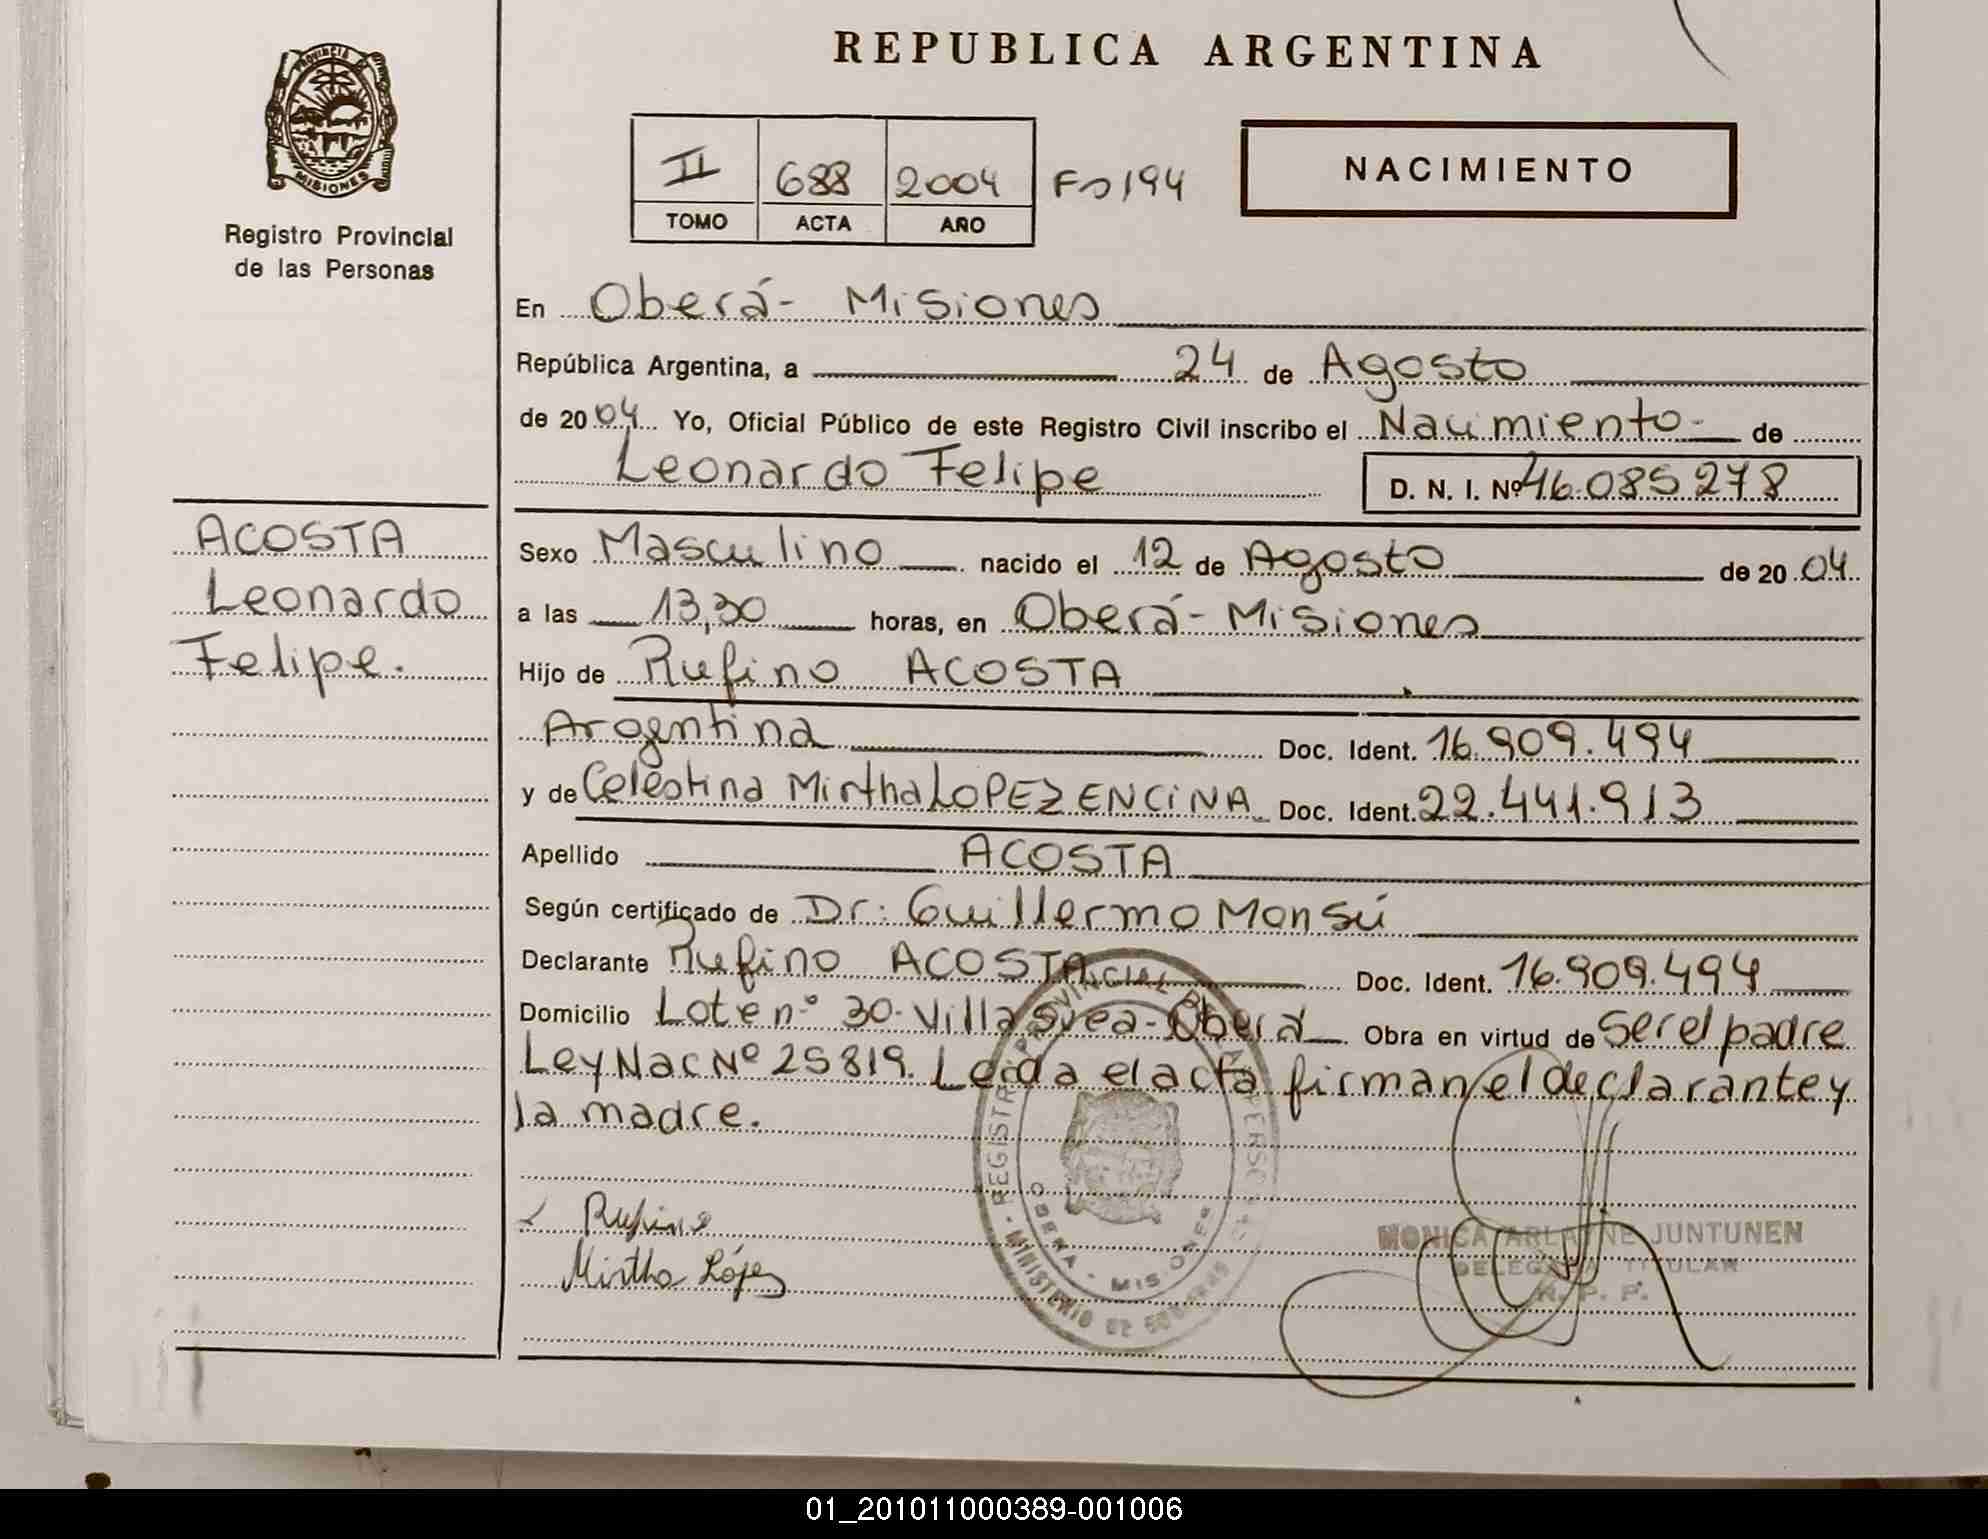 PROVINCIA DE
MISIONES
Registro Provincial
de las Personas
ACOSTA
Leonardo
Felipe.
REPUBLICA ARGENTINA
II 688 2004 Fo 194
TOMO ACTA AÑO
NACIMIENTO
En Oberá- Misiones
República Argentina, a 24 de Agosto
de 2004 Yo, Oficial Público de este Registro Civil inscribo el Nacimiento- de
Leonardo Felipe D. N. I. Nº 46.085.278
Sexo Masculino nacido el 12 de Agosto de 2004
a las 13,30 horas, en Oberá- Misiones
Hijo de Rufino ACOSTA
Argentina Doc. Ident. 16.909.494
y de Celestina Mirtha LOPEZ ENCINA Doc. Ident. 22.441.913
Apellido ACOSTA
Según certificado de Dr: Guillermo Monsú
Declarante Rufino ACOSTA Doc. Ident. 16.909.494
Domicilio Lote nº 30- Villa Svea- Oberá Obra en virtud de Ser el padre
Ley Nac Nº 25819. Leída el acta firman el declarante y
la madre.
Rufino
Mirtha López
REGISTRO PROVINCIAL DE LAS PERSONAS
MINISTERIO DE GOBIERNO
OBERA - MISIONES
MONICA ARLAYNE JUNTUNEN
DELEGADA TITULAR
R. P. P.
01_201011000389-001006